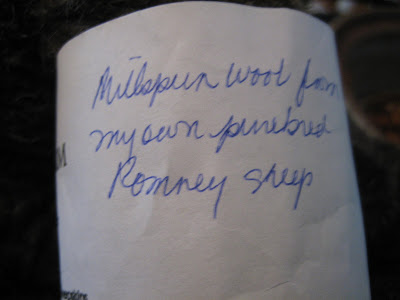 Millspun wool from
my own purebred
Romney sheep
M